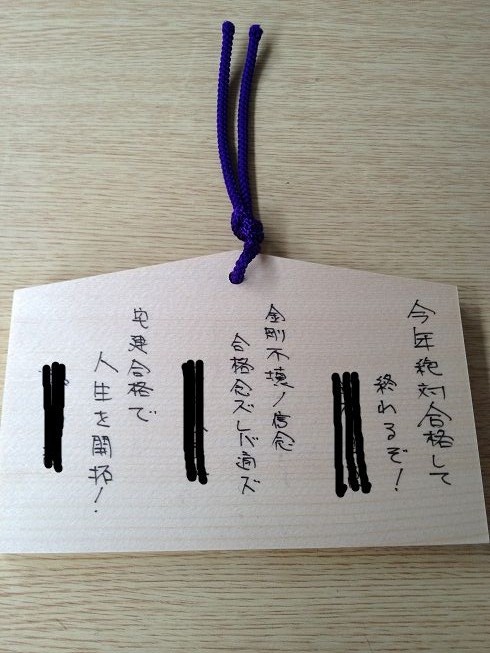 今年絶対合格して
終わるぞ！
金剛不壊ノ信念
合格念ズレバ適ズ
宅建合格で
人生を開拓！